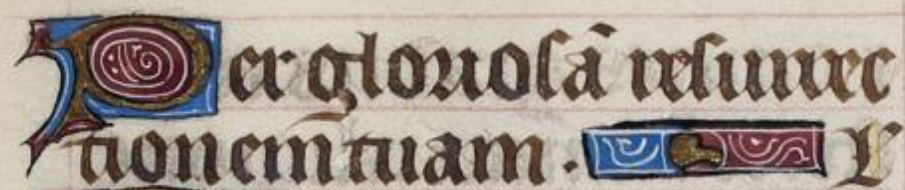 Per gloriosā resurrec
tionem tuam . L